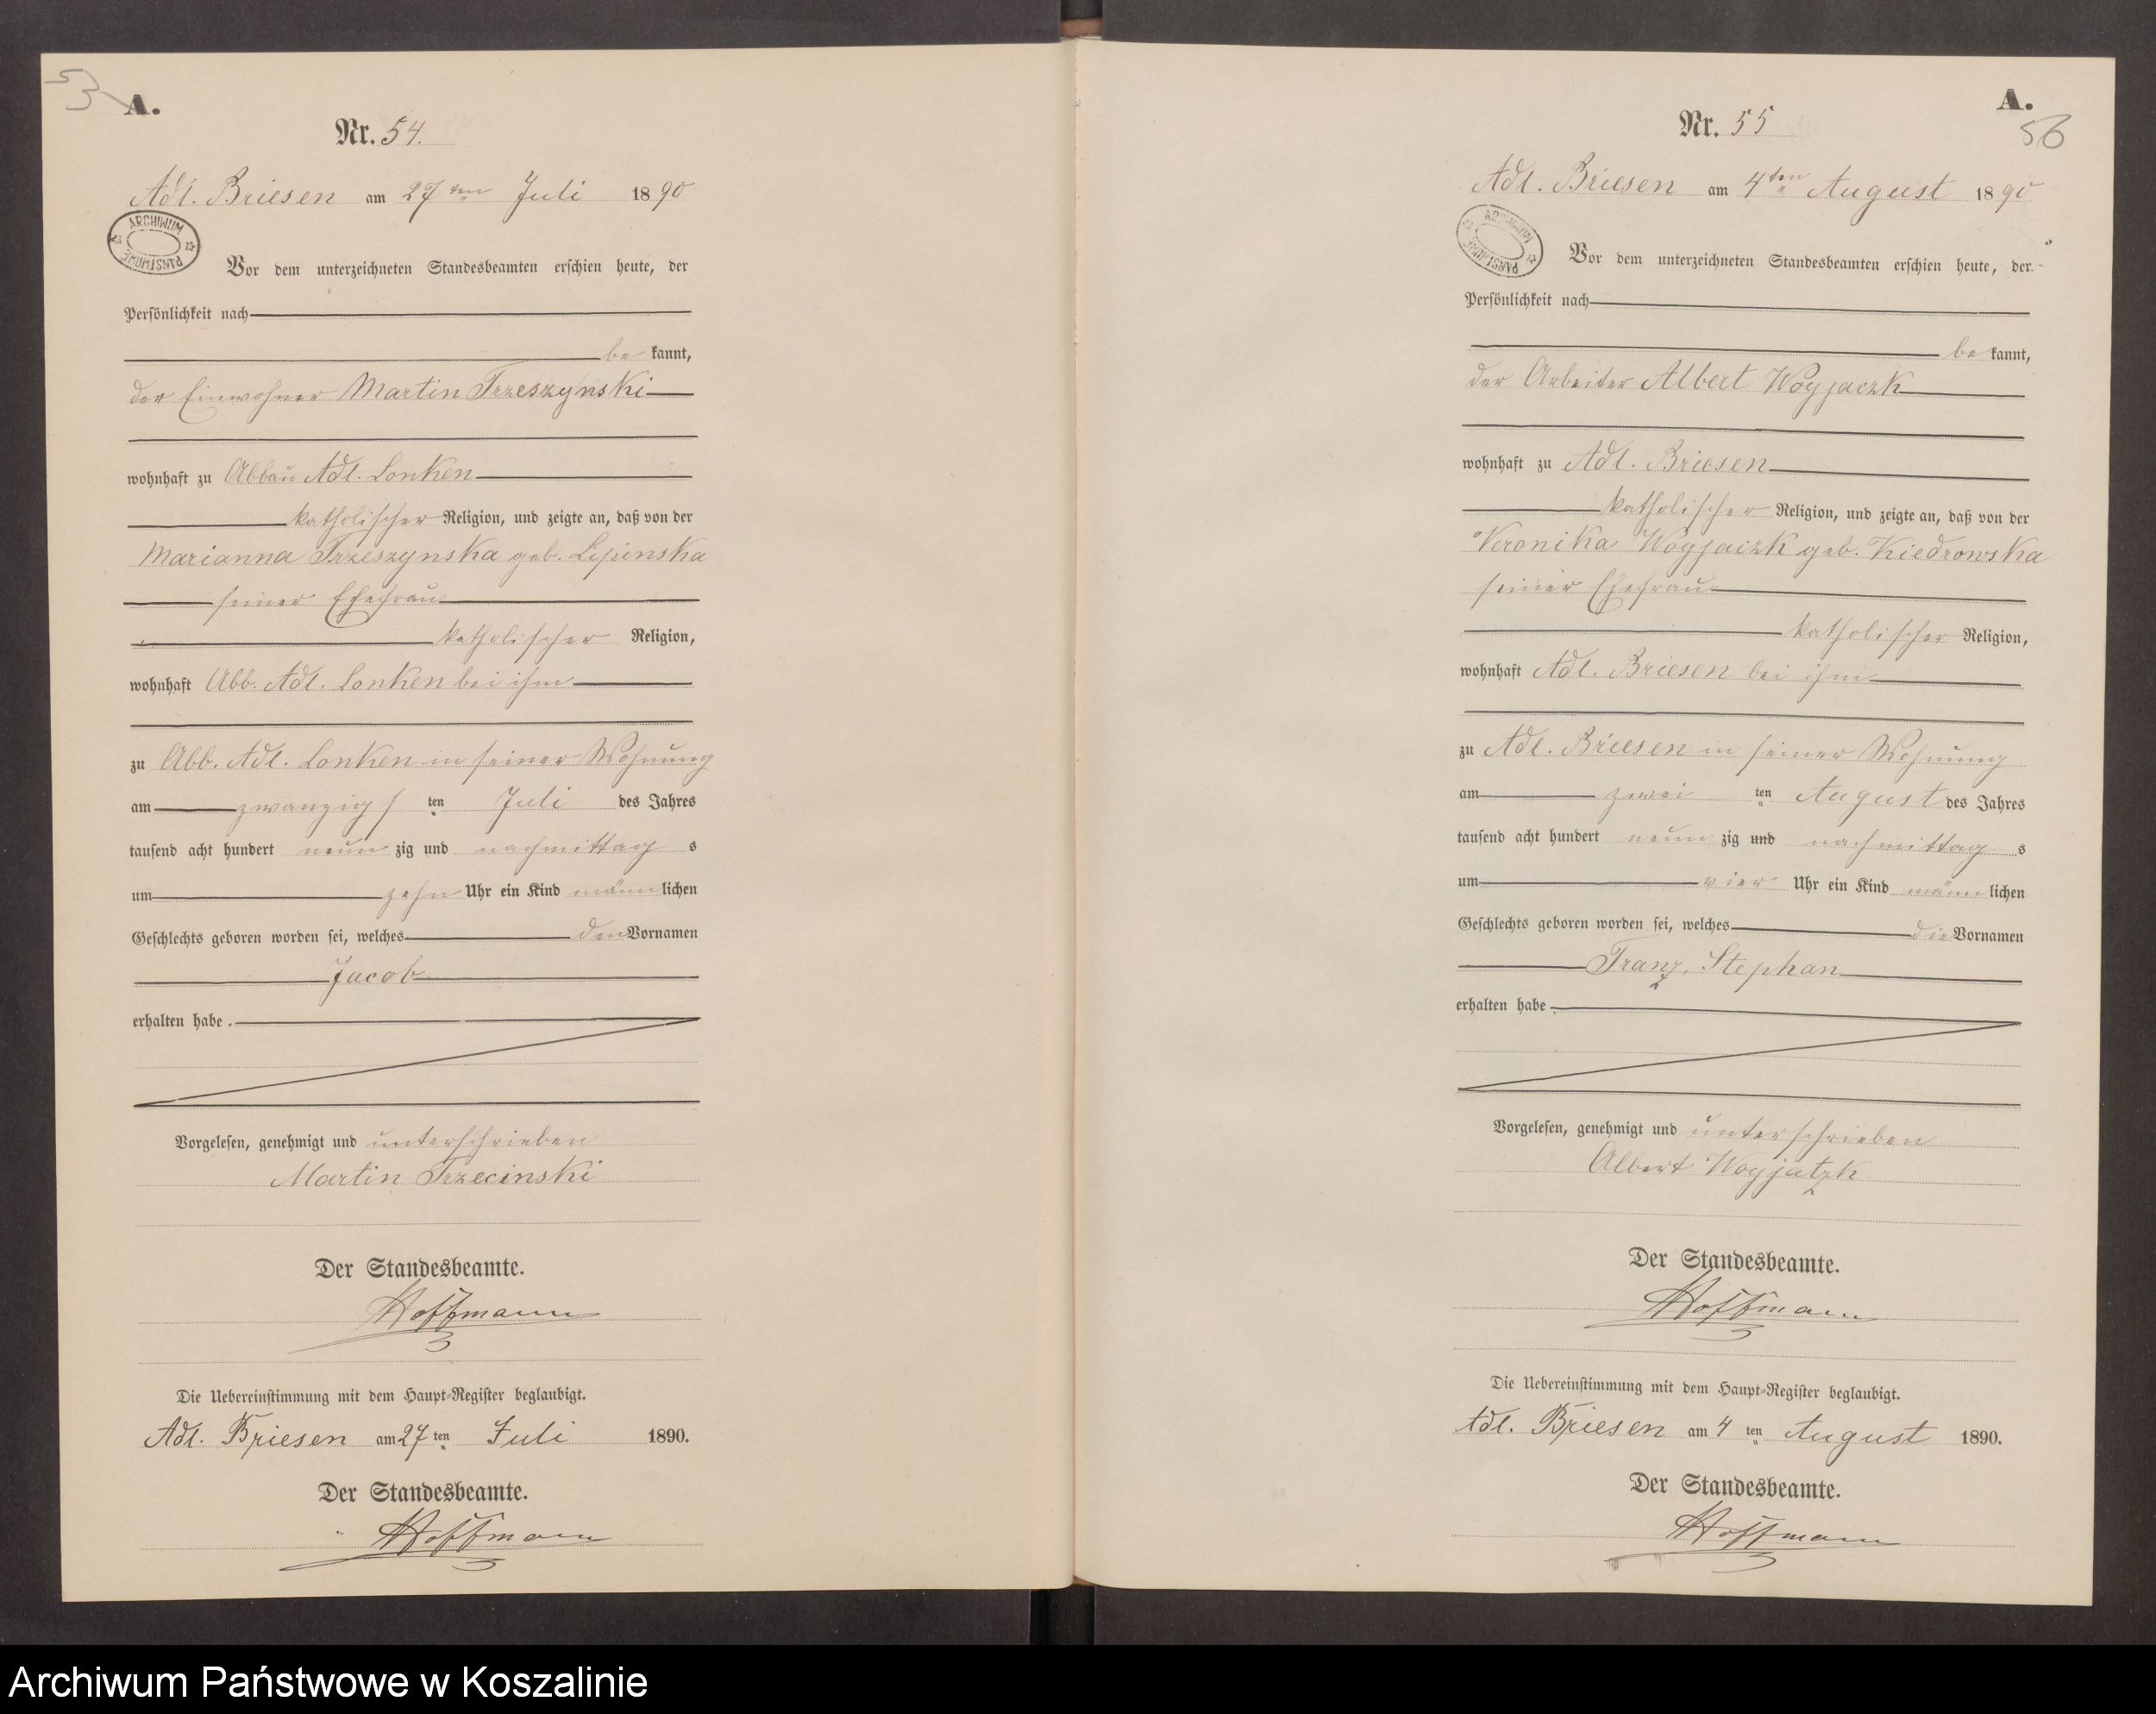 53
A.
Nr. 54.
Adl. Briesen am 27ten Juli 1890
ARCHIWUM PAŃSTWOWE
Vor dem unterzeichneten Standesbeamten erschien heute, der
Persönlichkeit nach
be kannt,
der Einwohner Martin Trzeszynski
wohnhaft zu Abbau Adl. Lonken
katholischer Religion, und zeigte an, daß von der
Marianna Trzeszynska geb. Lipinska
seiner Ehefrau
katholischer Religion,
wohnhaft Abb. Adl. Lonken bei ihm
zu Abb. Adl. Lonken in seiner Wohnung
am zwanzigs ten Juli des Jahres
tausend acht hundert neun zig und nachmittag s
um zehn Uhr ein Kind männlichen
Geschlechts geboren worden sei, welches den Vornamen
Jacob
erhalten habe.
Vorgelesen, genehmigt und unterschrieben
Martin Trzecinski
Der Standesbeamte.
Hoffmann
Die Uebereinstimmung mit dem Haupt-Register beglaubigt.
Adl. Briesen am 27 ten Juli 1890.
Der Standesbeamte.
Hoffmann
A.
56
Nr. 55
Adl. Briesen am 4ten August 1890
ARCHIWUM PAŃSTWOWE
Vor dem unterzeichneten Standesbeamten erschien heute, der
Persönlichkeit nach
be kannt,
der Arbeiter Albert Woyjaczk
wohnhaft zu Adl. Briesen
katholischer Religion, und zeigte an, daß von der
Veronika Woyjaczk geb. Kiedrowska
seiner Ehefrau
katholischer Religion,
wohnhaft Adl. Briesen bei ihm
zu Adl. Briesen in seiner Wohnung
am zwei ten August des Jahres
tausend acht hundert neun zig und nachmittag s
um vier Uhr ein Kind männlichen
Geschlechts geboren worden sei, welches die Vornamen
Franz, Stephan
erhalten habe.
Vorgelesen, genehmigt und unterschrieben
Albert Woyjatzk
Der Standesbeamte.
Hoffmann
Die Uebereinstimmung mit dem Haupt-Register beglaubigt.
Adl. Briesen am 4 ten August 1890.
Der Standesbeamte.
Hoffmann
Archiwum Państwowe w Koszalinie